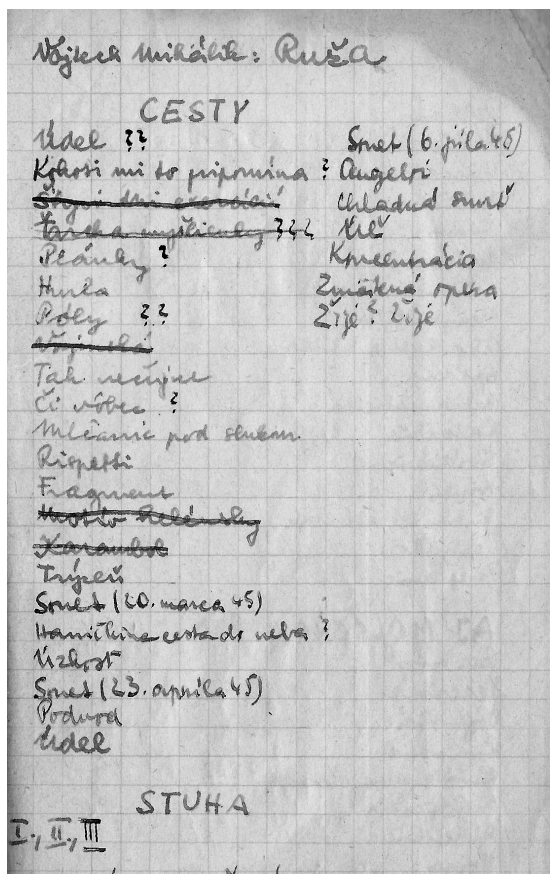 Vojtech Mihálik: Ruža
CESTY
Údel ??
Kohosi mi to pripomína ?
Plánky ?
Hurka
Póly ??
Tak nečujne
Či vôbec ?
Mlčanie pod slnkom
Rispetti
Fragment
Motív helénsky
Karambol
Trýzeň
Sonet (20. marca 45)
Haničkina cesta do neba ?
Úzkosť
Sonet (23. apríla 45)
Podvod
Údel
Sonet (6. júla 45)
Angelovi
Chladná smrť
Koncentrácia
Zmätená opera
Žijé? Žijé
STUHA
I., II., III